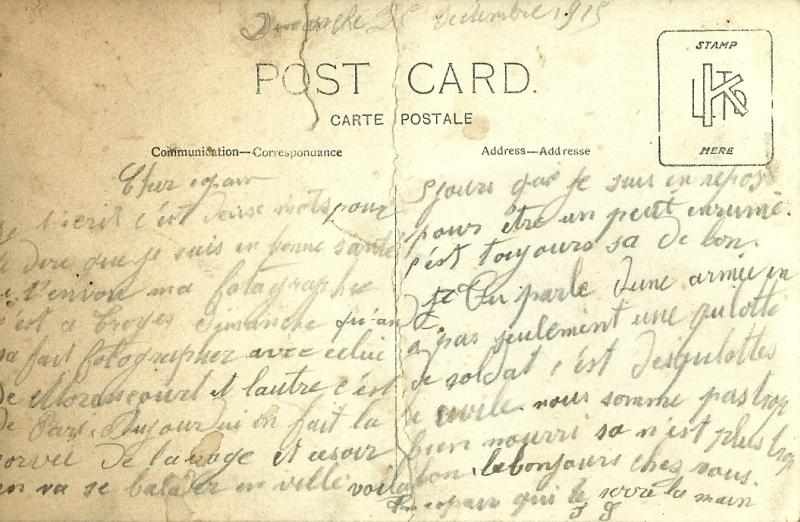 Dimanche 26 decembre 1915
POST CARD.
CARTE POSTALE
STAMP
HERE
Communication—Correspondance
Address—Addresse
Cher copain
t'ecrit c'est deuse mots pour
dire que je suis en bonne santé
t'envoie ma fotographie
c'est a Troyes dimanche qu'an
sa fait fotographer avec celui
de Morancourt et lautre c'est
de Pari. Aujourdui on fait la
corvée de lavage et asoir
on va se balader en ville voila
5 jours que je suis en repos
pour être un petit enrumé.
c'est toujours sa de bon.
je Tu parle d'une armée on
a pas seulement une culotte
de soldat c'est des culottes
de civile nous somme pas trop
bien nourri sa n'est plus trop
bon. le bonjours chez vous.
copain qui te serre la main